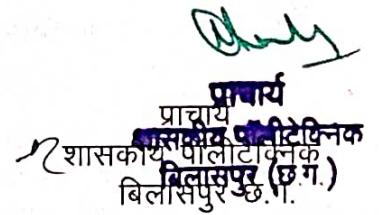 प्राचार्य
प्राचार्य
शासकीय पॉलीटेक्निक
शासकीय पॉलीटेक्निक
बिलासपुर (छ.ग.)
बिलासपुर छ.ग.